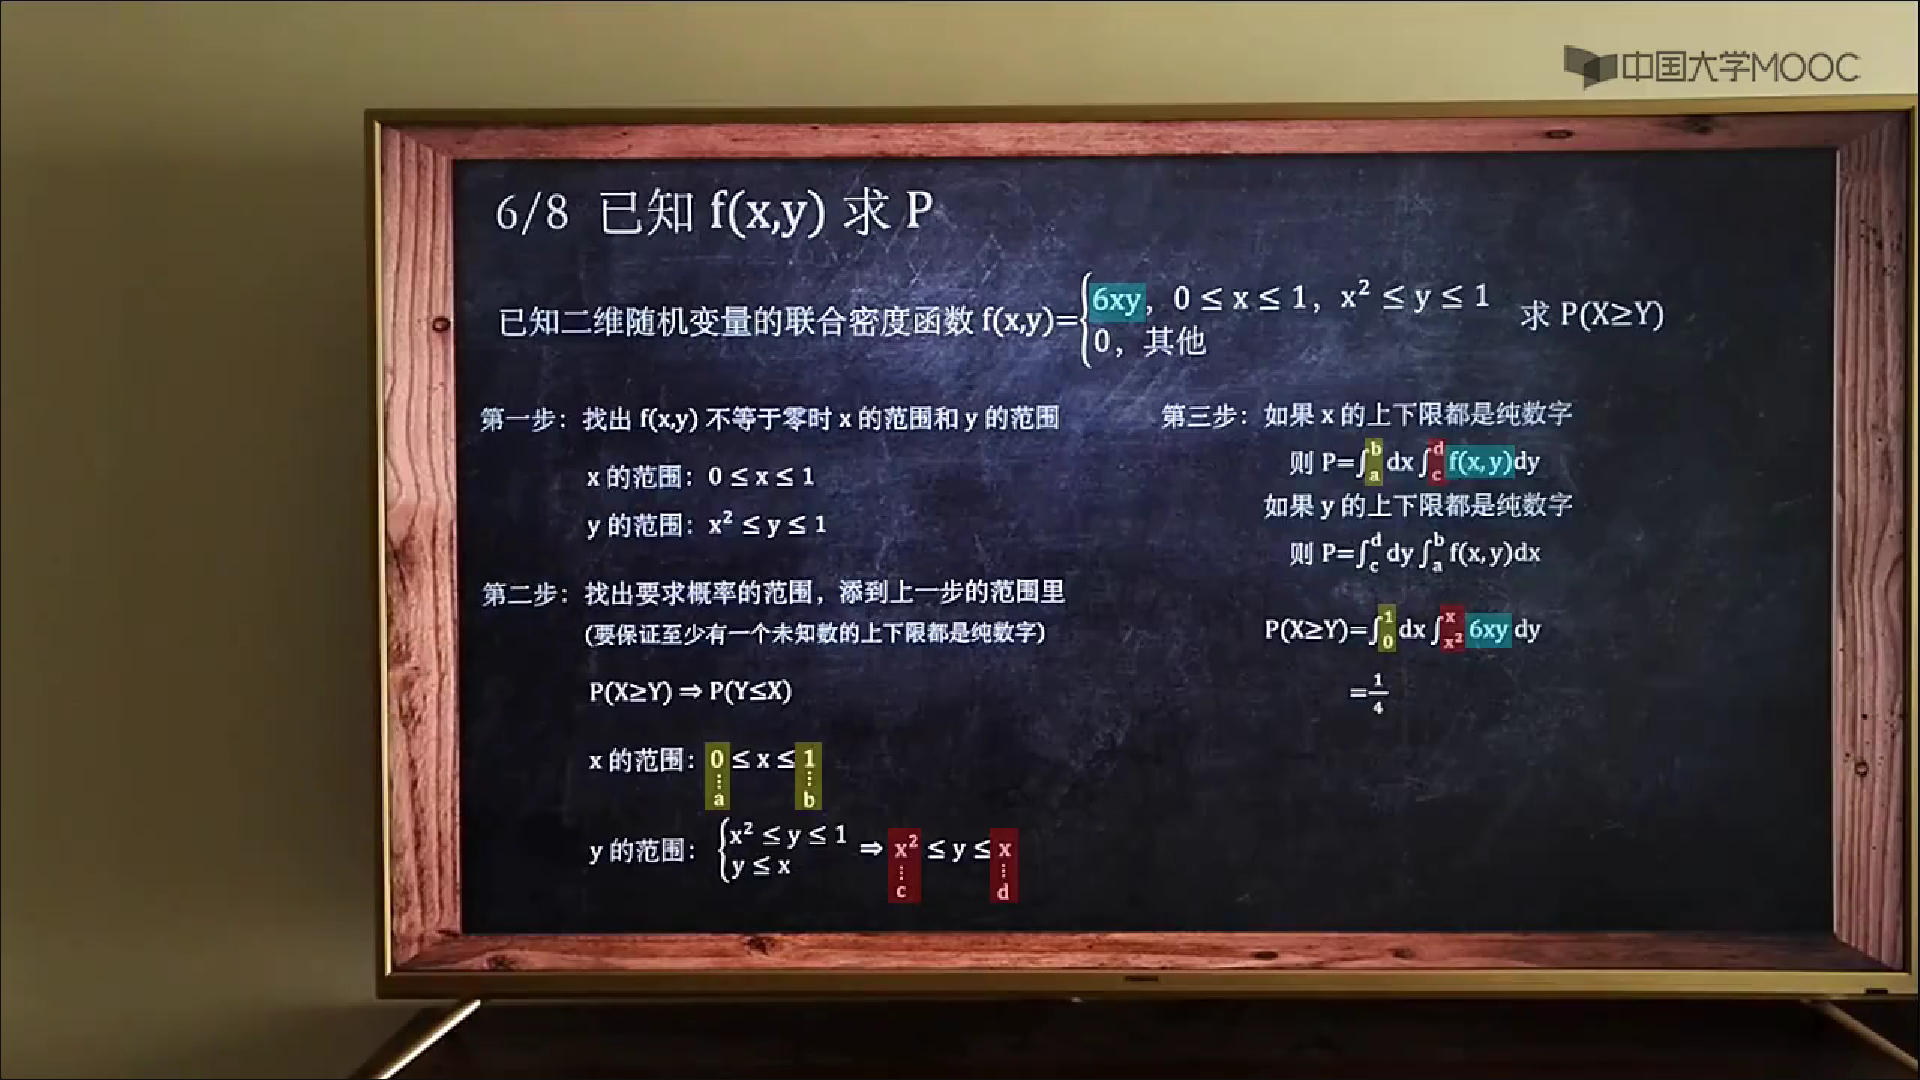 中国大学MOOC
6/8 已知 f(x,y) 求 P
已知二维随机变量的联合密度函数 f(x,y)={6xy, 0 ≤ x ≤ 1, x² ≤ y ≤ 1
0, 其他
求 P(X≥Y)
第一步：找出 f(x,y) 不等于零时 x 的范围和 y 的范围
x 的范围：0 ≤ x ≤ 1
y 的范围：x² ≤ y ≤ 1
第二步：找出要求概率的范围，添到上一步的范围里
(要保证至少有一个未知数的上下限都是纯数字)
P(X≥Y) ⇒ P(Y≤X)
x 的范围：0 ≤ x ≤ 1
⋮ ⋮
a b
y 的范围：{x² ≤ y ≤ 1 ⇒ x² ≤ y ≤ x
y ≤ x
⋮ ⋮
c d
第三步：如果 x 的上下限都是纯数字
则 P=∫_a^b dx ∫_c^d f(x,y)dy
如果 y 的上下限都是纯数字
则 P=∫_c^d dy ∫_a^b f(x,y)dx
P(X≥Y)=∫_0^1 dx ∫_{x²}^x 6xy dy
=1/4